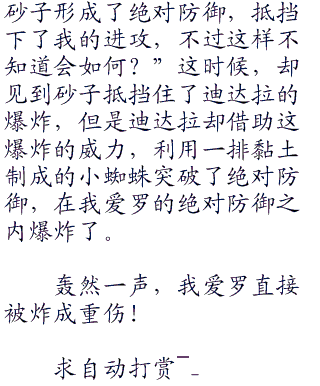 砂子形成了绝对防御，抵挡
下了我的进攻，不过这样不
知道会如何？”这时候，却
见到砂子抵挡住了迪达拉的
爆炸，但是迪达拉却借助这
爆炸的威力，利用一排黏土
制成的小蜘蛛突破了绝对防
御，在我爱罗的绝对防御之
内爆炸了。
轰然一声，我爱罗直接
被炸成重伤！
求自动打赏¯_